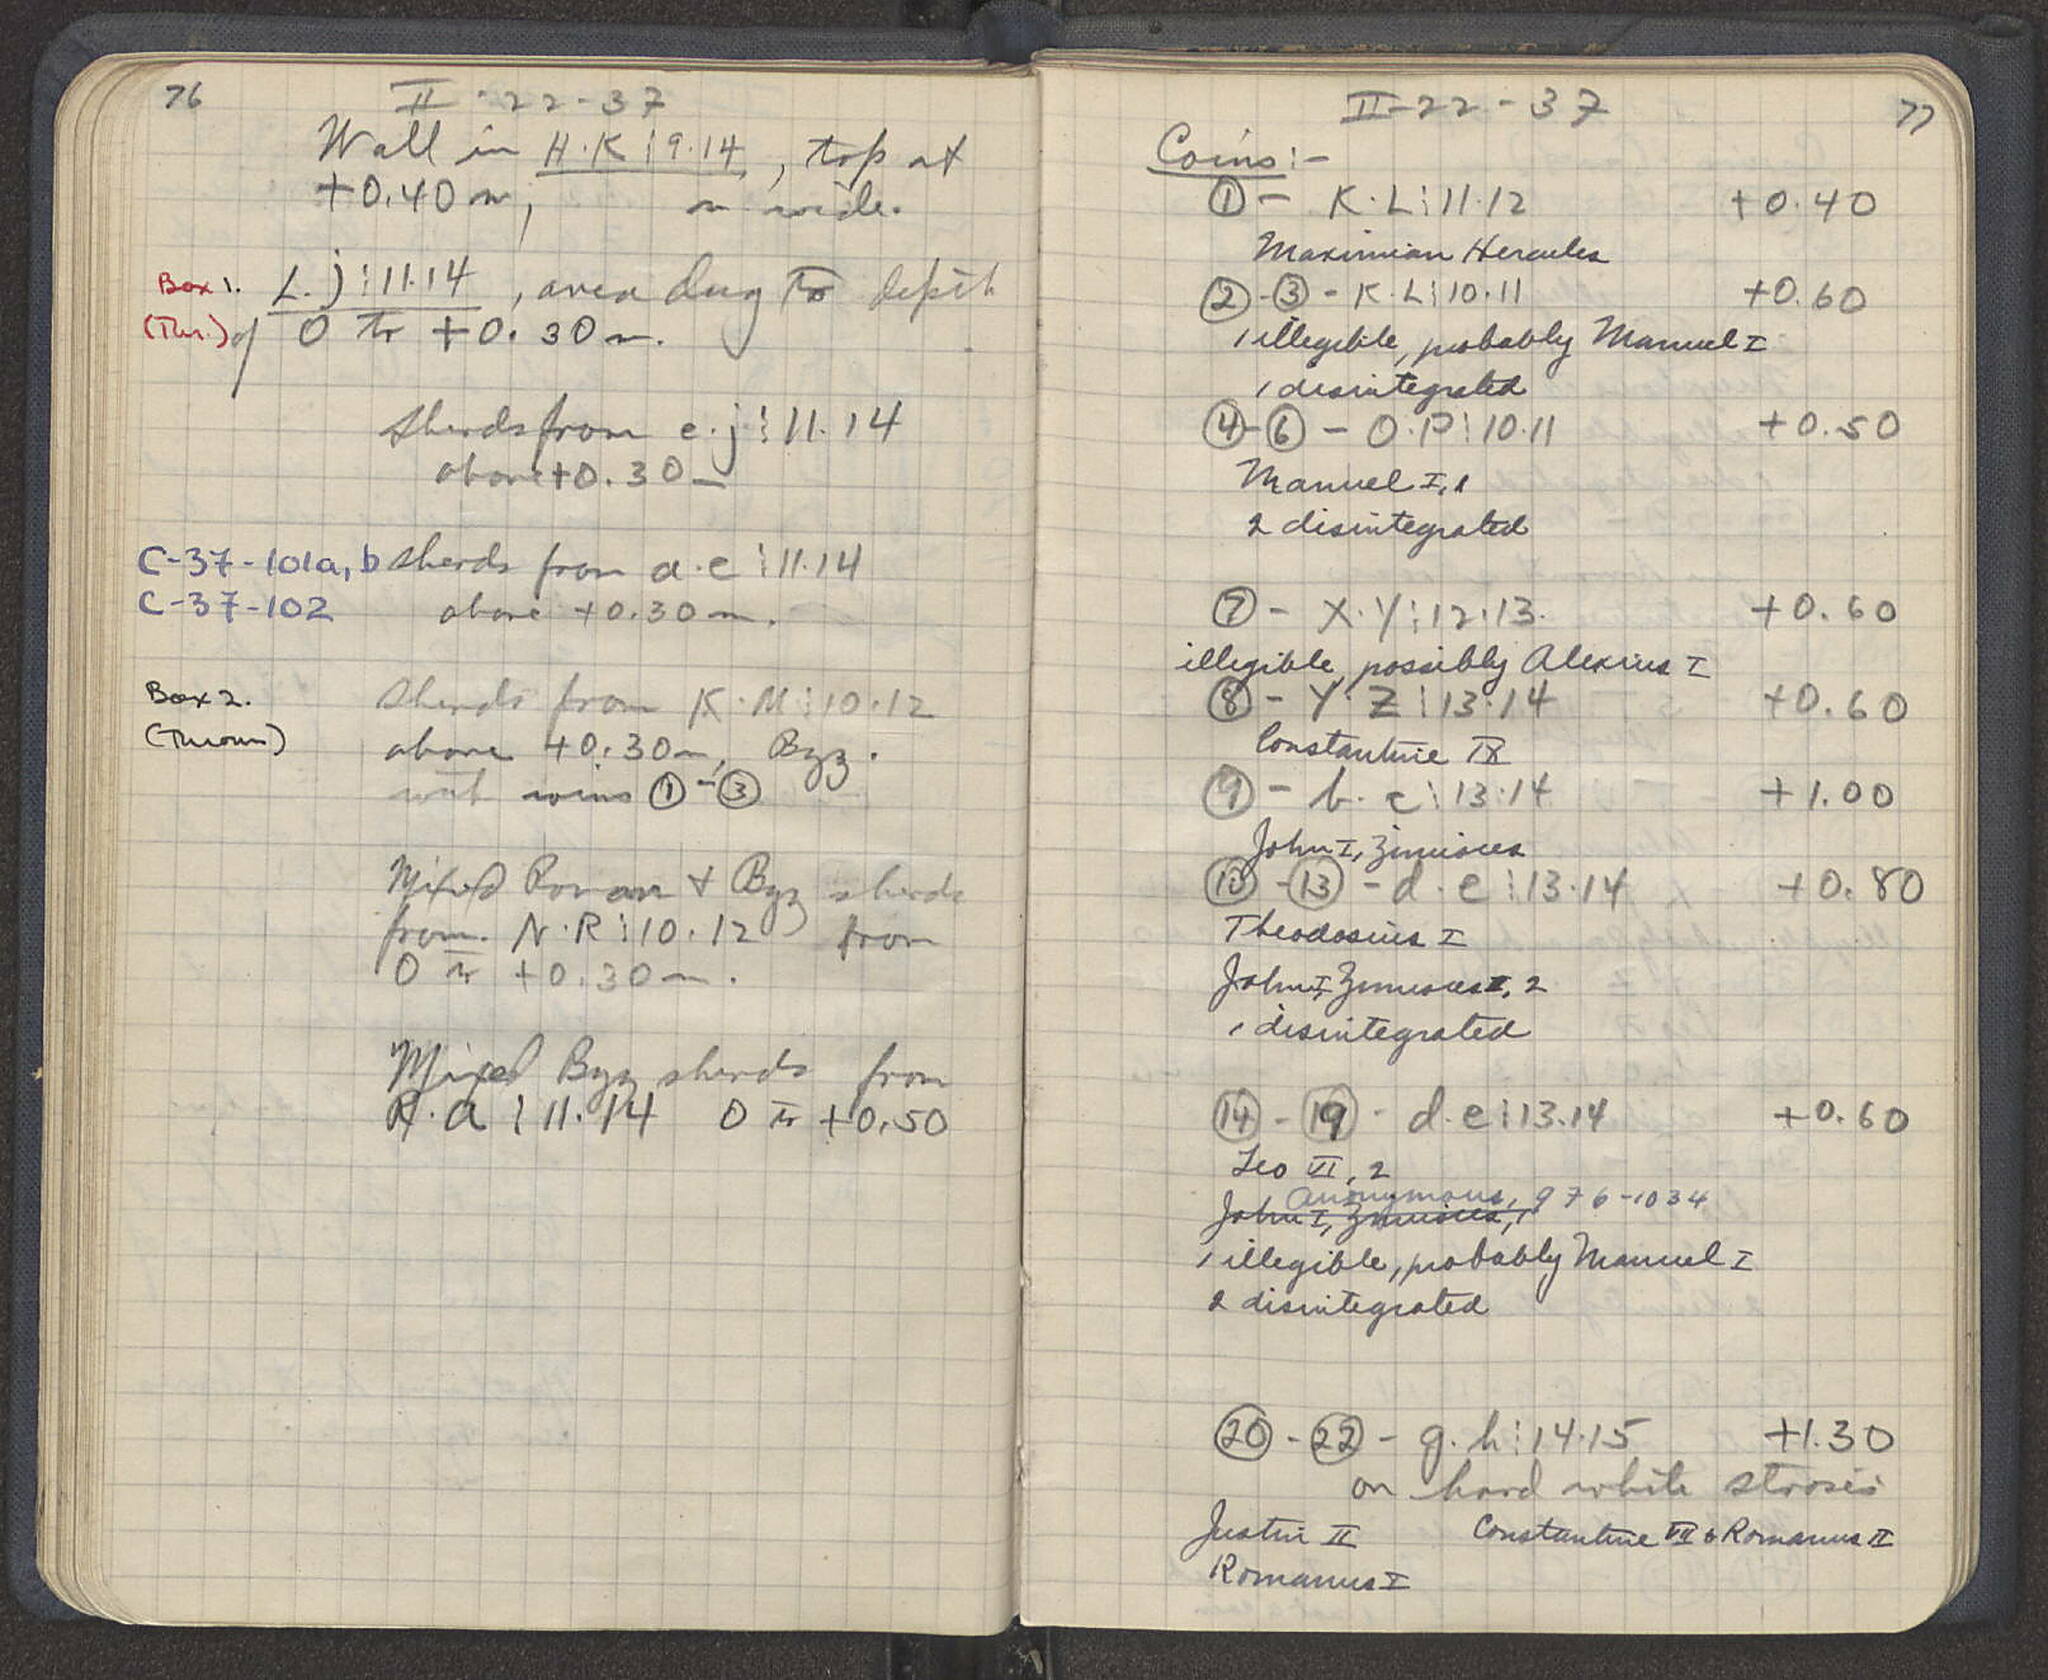 76
II-22-37
Wall in H·K⁝9·14, top at
+0.40m, m wide.
Box 1. L·j⁝11.14, area dug to depth
(Thr.) of 0 to +0.30m.
Sherds from e·j⁝11.14
above +0.30m
C-37-101a, b sherds from a·e⁝11.14
C-37-102 above +0.30m.
Box 2. Sherds from K·M⁝10·12
(Thrown) above +0.30m, Byz.
with coins ①-③
Mixed Roman + Byz sherds
from N·R⁝10·12 from
0 to +0.30m.
Mixed Byz sherds from
R·a⁝11.14 0 to +0.50
II-22-37
77
Coins:-
①- K·L⁝11·12 +0.40
Maximian Hercules
②-③- K·L⁝10·11 +0.60
1 illegible, probably Manuel I
1 disintegrated
④-⑥- O·P⁝10·11 +0.50
Manuel I, 1
2 disintegrated
⑦- X·Y⁝12·13. +0.60
illegible, possibly Alexius I
⑧- Y·Z⁝13·14 +0.60
Constantine IX
⑨- b·c⁝13·14 +1.00
John I, Zimisces
⑩-⑬- d·e⁝13·14 +0.80
Theodosius I
John I, Zimisces, 2
1 disintegrated
⑭-⑲- d·e⁝13.14 +0.60
Leo VI, 2
Anonymous, 976-1034
John I, Zimisces, 1
1 illegible, probably Manuel I
2 disintegrated
⑳-㉒- g·h⁝14·15 +1.30
on hard white strosis
Justin II Constantine VII & Romanus II
Romanus I